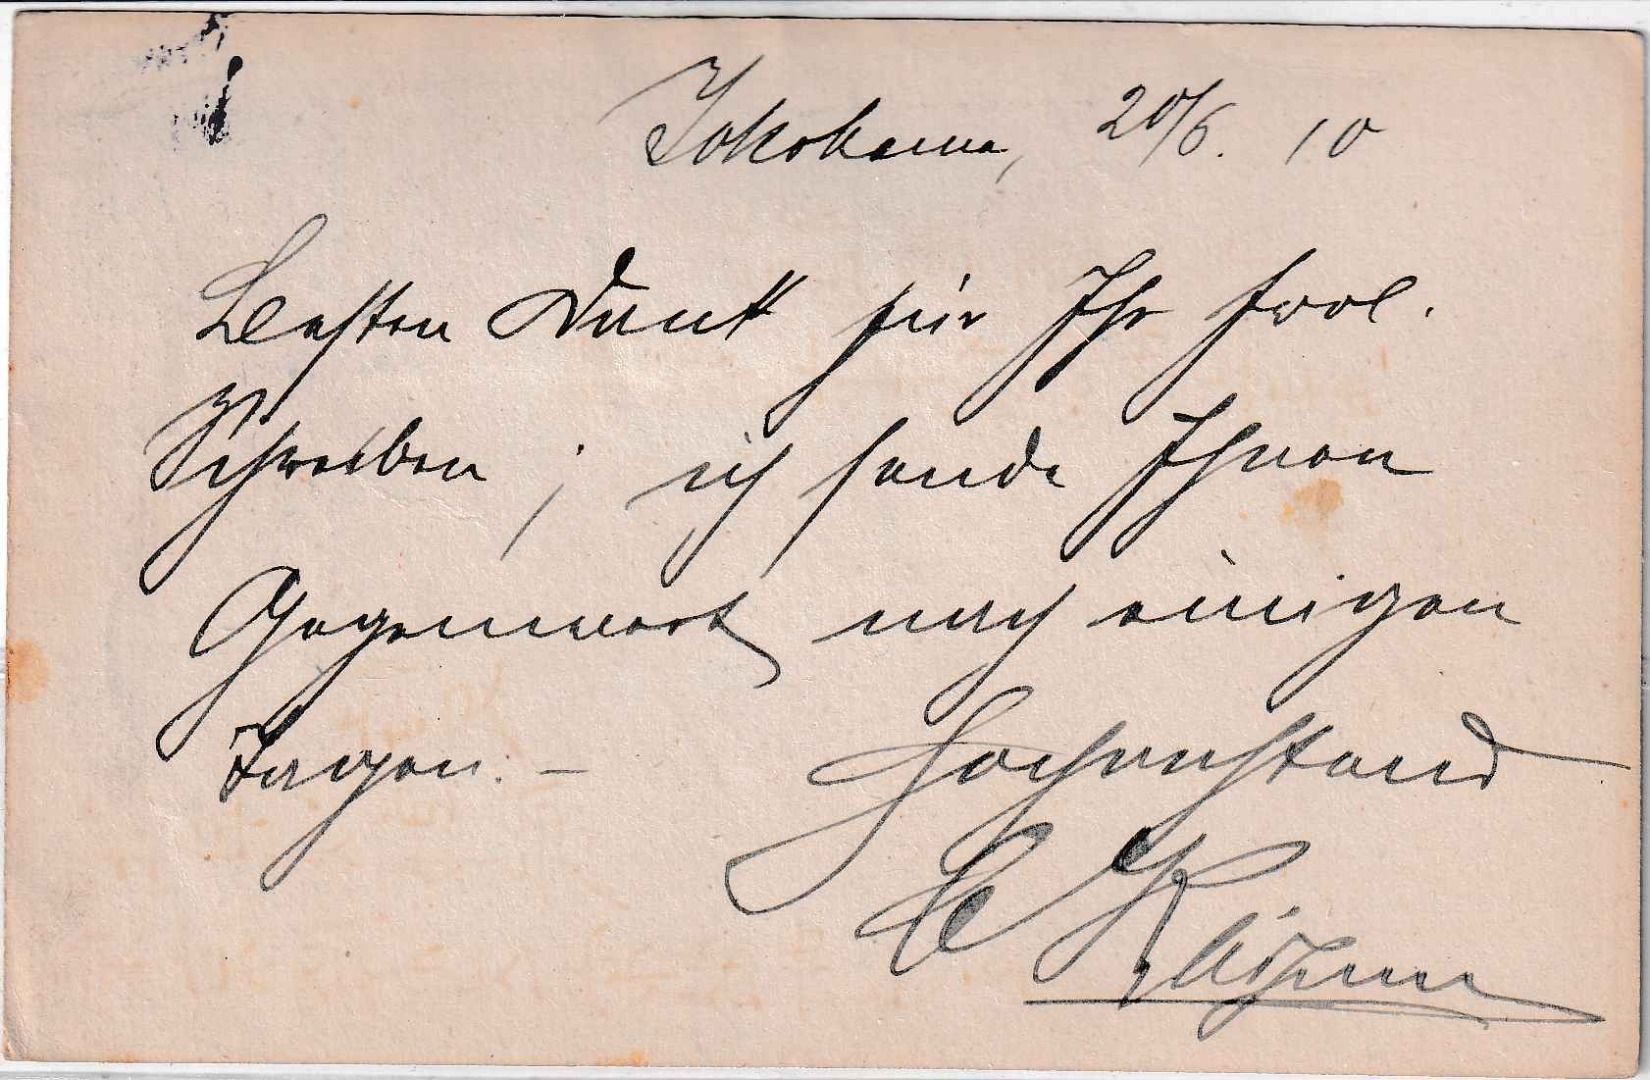 Yokohama, 20/6. 10
Besten Dank für Ihr frdl.
Schreiben; ich sende Ihnen
Gegenwert nach einigen
Tagen. –
Hochachtend